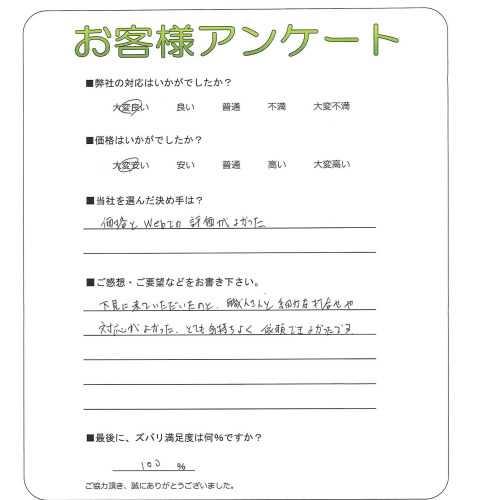 お客様アンケート
■弊社の対応はいかがでしたか？
大変良い 良い 普通 不満 大変不満
■価格はいかがでしたか？
大変安い 安い 普通 高い 大変高い
■当社を選んだ決め手は？
価格と Webでの 評価がよかった
■ご感想・ご要望などをお書き下さい。
下見に来ていただいたのと、職人さんと細かな打合せや
対応がよかった、とても気持ちよく 依頼できよかったです
■最後に、ズバリ満足度は何％ですか？
100 ％
ご協力頂き、誠にありがとうございました。